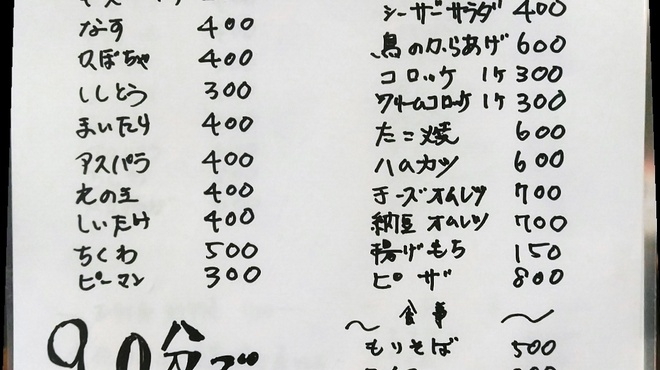 なす 400
かぼちゃ 400
ししとう 300
まいたけ 400
アスパラ 400
えのき 400
しいたけ 400
ちくわ 500
ピーマン 300
90分で
シーザーサラダ 400
鳥のからあげ 600
コロッケ 1ケ 300
クリームコロッケ 1ケ 300
たこ焼 600
ハムカツ 600
チーズオムレツ 700
納豆オムレツ 700
揚げもち 150
ピザ 800
〜 食事 〜
もりそば 500